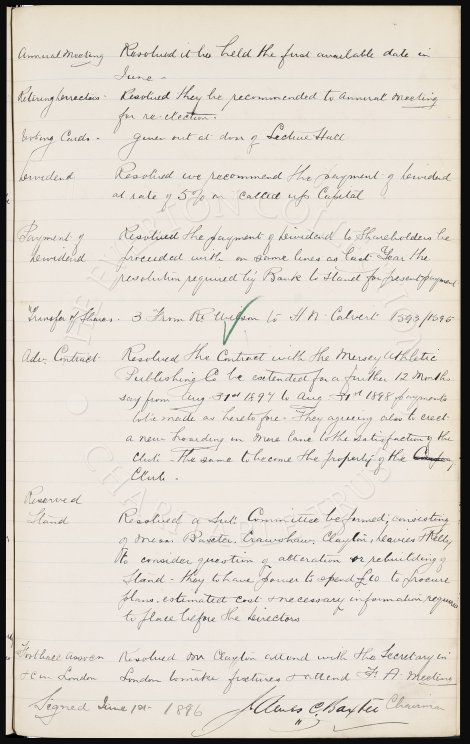 Annual Meeting Resolved it be held the first available date in
June.
Retiring Directors. Resolved they be recommended to Annual Meeting
for re-election.
Voting Cards. given out at door of Lecture Hall
Dividend Resolved we recommend the payment of Dividend
at rate of 5% on called up Capital
Payment of Resolved the payment of Dividend to Shareholders be
Dividend proceeded with on same lines as last Year the
resolution required by Bank to stand for present payment
Transfer of Shares. 3 From Wilson to H. Calvert 1593/1595
Adv. Contract Resolved the Contract with the Mersey Athletic
Publishing Co be extended for a further 12 Months
say from Aug 31st 1897 to Aug 31st 1898 payments
to be made as heretofore. They agreeing also to erect
a new hoarding in Mere lane to the satisfaction of the
Club. The same to become the property of the
Club.
Reserved
Stand Resolved a Sub. Committee be formed, consisting
of Baxter, Crawshaw, Clayton, Leavers & Kelly
to consider question of alteration or rebuilding of
Stand - they to have power to spend £10 to procure
plans, estimated cost & necessary information required
to place before the Directors
Football Assocn Resolved Mr Clayton attend with the Secretary in
London London to make fixtures & attend F. A. Meeting
Signed June 1st 1896 James C. Baxter Chairman